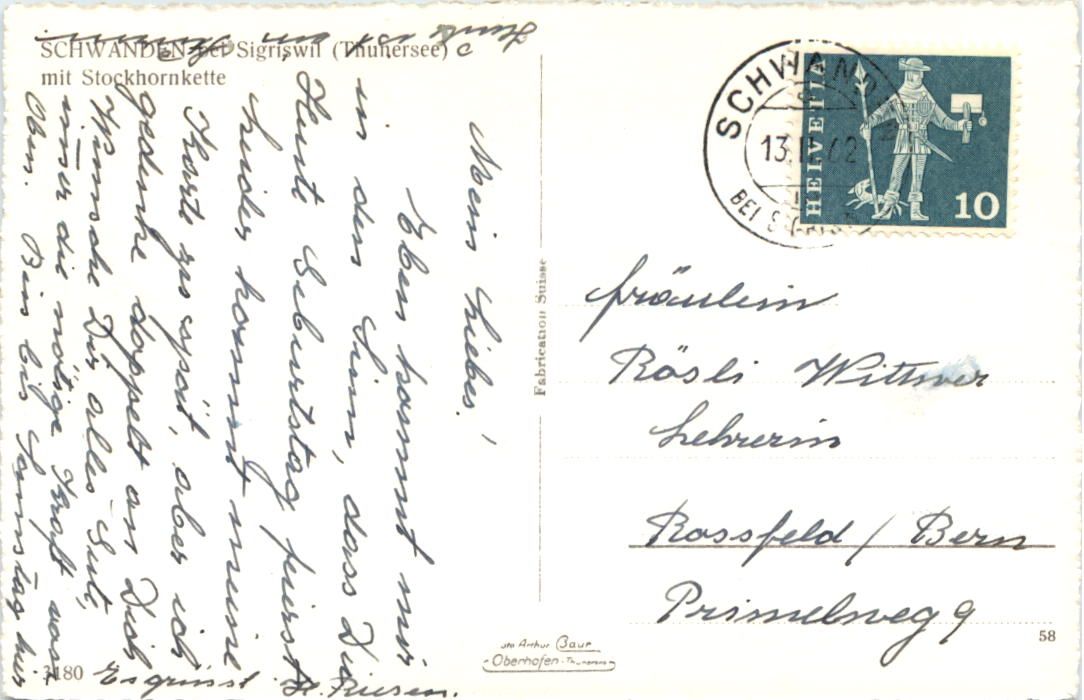 SCHWANDEN bei Sigriswil (Thunersee)
mit Stockhornkette
Mein Liebes!
Eben kommt mir
in den Sinn, dass Du
Heute Geburtstag feierst
Leider kommt meine
Karte zu spät, aber ich
gedenke doppelt an Dich
Wünsche Dir alles Gute,
immer die nötige Kraft von
Oben. Bin bis Samstag hier
Es grüsst Fr. Riesen.
3180
Fabrication Suisse
SCHWANDEN
13.II.62
BEI
HELVETIA
10
Fräulein
Rösli Wittwer
Lehrerin
Rossfeld / Bern
Primelweg 9
58
Foto Arthur Baur
Oberhofen-Thunersee